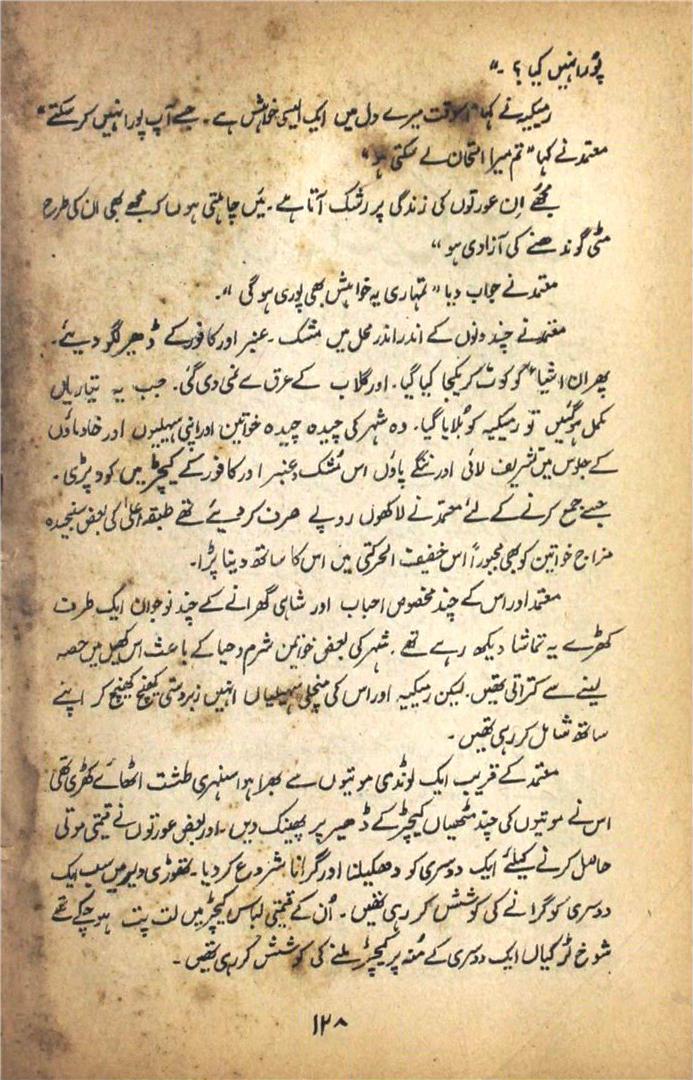 پورا نہیں کیا ؟ ۔"
رمیکیہ نے کہا "اسوقت میرے دل میں ایک ایسی خواہش ہے ۔ جسے آپ پورا نہیں کر سکتے"
معتمد نے کہا "تم میرا امتحان لے سکتی ہو"
مجھے اِن عورتوں کی زندگی پر رشک آتا ہے ۔ مَیں چاہتی ہوں کہ مجھے بھی ان کی طرح
مٹی گوندھنے کی آزادی ہو "
معتمد نے جواب دیا " تمہاری یہ خواہش بھی پوری ہو گی "۔
معتمد نے چند دنوں کے اندر اندر محل میں مشک ۔ عنبر اور کافور کے ڈھیر لگو دیئے ۔
پھر ان اشیأ کو کوٹ کر یکجا کیا گیا ۔ اور گلاب کے عرق سے نمی دی گئی ۔ جب یہ تیاریاں
مکمل ہو گئیں تو رمیکیہ کو بُلایا گیا ۔ وہ شہر کی چیدہ چیدہ خواتین اور اپنی سہیلیوں اور خادماؤں
کے جلوس میں تشریف لائی اور ننگے پاؤں اس مُشک و عنبر اور کافور کے کیچڑ میں کود پڑی ۔
جسے جمع کرنے کے لئے معتمد نے لاکھوں روپے صرف کر دیئے تھے طبقہ اعلیٰ کی بعض سنجیدہ
مزاج خواتین کو بھی مجبوراً اس خفیف الحرکتی میں اس کا ساتھ دینا پڑا۔
معتمد اور اس کے چند مخصوص احباب اور شاہی گھرانے کے چند نوجوان ایک طرف
کھڑے یہ تماشا دیکھ رہے تھے ۔ شہر کی بعض خواتین شرم و حیا کے باعث اس کھیل میں حصہ
لینے سے کتراتی تھیں ۔ لیکن رمیکیہ اور اس کی منچلی سہیلیاں انہیں زبردستی کھینچ کھینچ کر اپنے
ساتھ شامل کر رہی تھیں ۔
معتمد کے قریب ایک لونڈی موتیوں سے بھرا ہوا سنہری طشت اٹھائے کھڑی تھی
اس نے موتیوں کی چند مٹھیاں کیچڑ کے ڈھیر پر پھینک دیں ۔ اور بعض عورتوں نے قیمتی موتی
حاصل کرنے کیلئے ایک دوسری کو دھکیلنا اور گرانا شروع کر دیا ۔ تھوڑی دیر میں سب ایک
دوسری کو گرانے کی کوشش کر رہی تھیں ۔ اُن کے قیمتی لباس کیچڑ میں لت پت ہو چکے تھے
شوخ لڑکیاں ایک دوسری کے مُنہ پر کیچڑ ملنے کی کوشش کر رہی تھیں ۔
۱۲۸